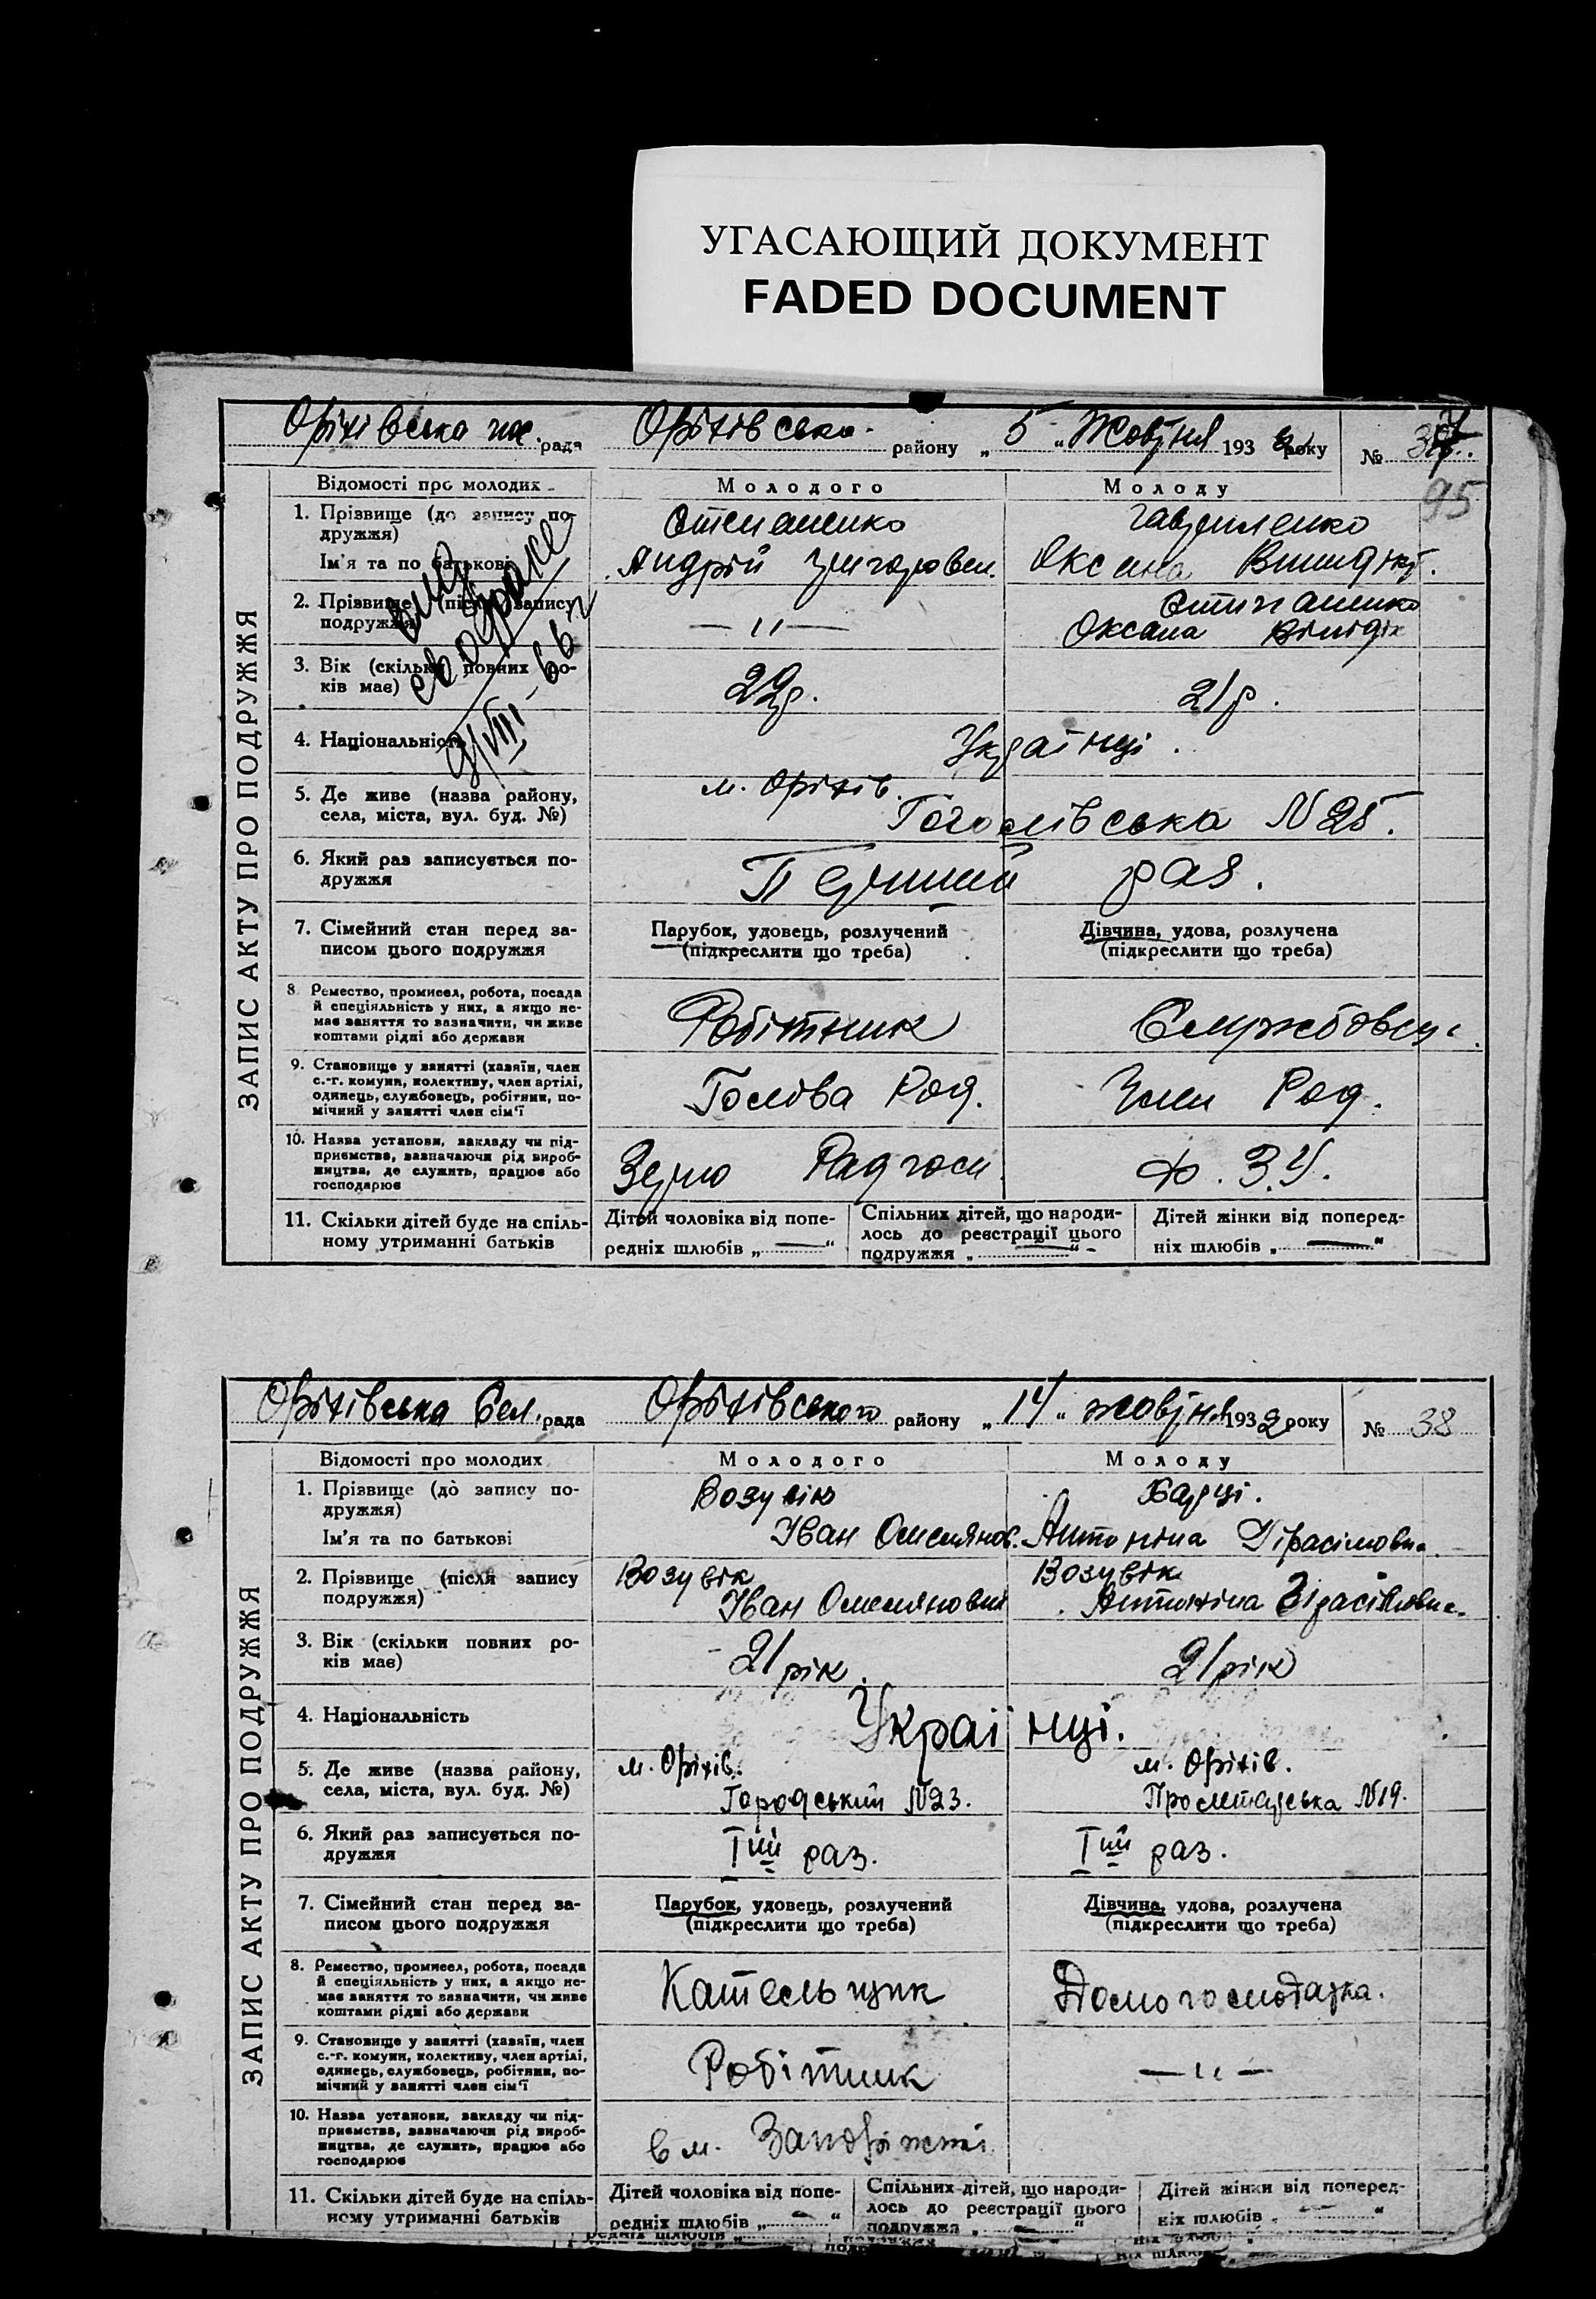 УГАСАЮЩИЙ ДОКУМЕНТ
FADED DOCUMENT
Оріхівська рада Оріхівська району „ 5 “ Жовтня 193 року №
95
ЗАПИС АКТУ ПРО ПОДРУЖЖЯ
Відомості про молодих Молодого Молоду
1. Прізвище (до запису по-
дружжя) Степаненко Гавриленко
Ім'я та по батькові Андрій Григорович Оксана
2. Прізвище (після запису
подружжя) — " — Степаненко
Оксана
св о браке
3. Вік (скільки повних ро-
ків має) 22р. 21р.
4. Національність Українці.
5. Де живе (назва району,
села, міста, вул. буд. №) м. Оріхів.
Гоголівська N 25.
6. Який раз записується по-
дружжя Перший раз.
7. Сімейний стан перед за-
писом цього подружжя
Парубок, удовець, розлучений
(підкреслити що треба)
Дівчина, удова, розлучена
(підкреслити що треба)
8. Ремество, промисел, робота, посада
й спеціяльність у них, а якщо не-
має заняття то зазначити, чи живе
коштами рідні або держави
Робітник Службовец.
9. Становище у занятті (хазяїн, член
с.-г. комуни, колективу, член артілі,
одинець, службовець, робітник, по-
мічний у занятті член сім'ї
Голова Род. Член Род.
10. Назва установи, закладу чи під-
приємства, зазначаючи рід вироб-
ництва, де служить, працює або
господарює
Зерно Радгосп Ф. З. У.
11. Скільки дітей буде на спіль-
ному утриманні батьків
Дітей чоловіка від попе-
редніх шлюбів „ — “
Спільних дітей, що народи-
лось до реєстрації цього
подружжя „ — “
Дітей жінки від поперед-
ніх шлюбів „ — “
Оріхівська Сел. рада Оріхівського району „ 14 “ жовтня 1932 року № 38
ЗАПИС АКТУ ПРО ПОДРУЖЖЯ
Відомості про молодих Молодого Молоду
1. Прізвище (до запису по-
дружжя)
Ім'я та по батькові Іван Омелянов. Антоніна Гірасімовна.
2. Прізвище (після запису
подружжя) Возувік Возувік
Іван Омелянович Антоніна Гірасімовна.
3. Вік (скільки повних ро-
ків має) 21 рік. 21 рік
4. Національність Українці.
5. Де живе (назва району,
села, міста, вул. буд. №) м. Оріхів. м. Оріхів.
Городський N23. Пролетарська N19.
6. Який раз записується по-
дружжя Iий раз. Iий раз.
7. Сімейний стан перед за-
писом цього подружжя
Парубок, удовець, розлучений
(підкреслити що треба)
Дівчина, удова, розлучена
(підкреслити що треба)
8. Ремество, промисел, робота, посада
й спеціяльність у них, а якщо не-
має заняття то зазначити, чи живе
коштами рідні або держави
Кательщик Домогосподарка.
9. Становище у занятті (хазяїн, член
с.-г. комуни, колективу, член артілі,
одинець, службовець, робітник, по-
мічний у занятті член сім'ї
Робітник — " —
10. Назва установи, закладу чи під-
приємства, зазначаючи рід вироб-
ництва, де служить, працює або
господарює
в м. Запоріжжі
11. Скільки дітей буде на спіль-
ному утриманні батьків
Дітей чоловіка від попе-
редніх шлюбів „ — “
Спільних дітей, що народи-
лось до реєстрації цього
подружжя „ — “
Дітей жінки від поперед-
ніх шлюбів „ — “